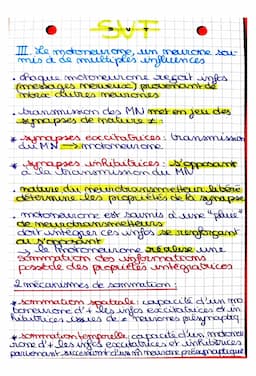 SVT
III. Le motoneurone, un neurone sou-
mis à de multiples influences
. chaque motoneurone reçoit infos
(messages nerveux) provenant de
nbrx d'autres neurones
. transmission des MN met en jeu des
synapses de nature ≠ :
* synapses excitatrices : transmission
du MN → motoneurone
* synapses inhibitrices : s'opposant
à la transmission du MN
. nature du neurotransmetteur libéré
détermine les propriétés de la synapse
. motoneurone est soumis à une "pluie"
de neurotransmetteurs
doit intégrer ces infos se renforçant
ou s'opposant
→ le motoneurone réalise une
sommation des informations
possède des propriétés intégratrices
2 mécanismes de sommation :
* sommation spatiale : capacité d'un mo
toneurone d'+ les infos excitatrices et in
hibitrices issues de ≠ neurones présynaptiq
* sommation temporelle : capacité d'un motoneu
rone d'+ les infos excitatrices et inhibitrices
parvenant successivmt d'un m̂ neurone présynaptique